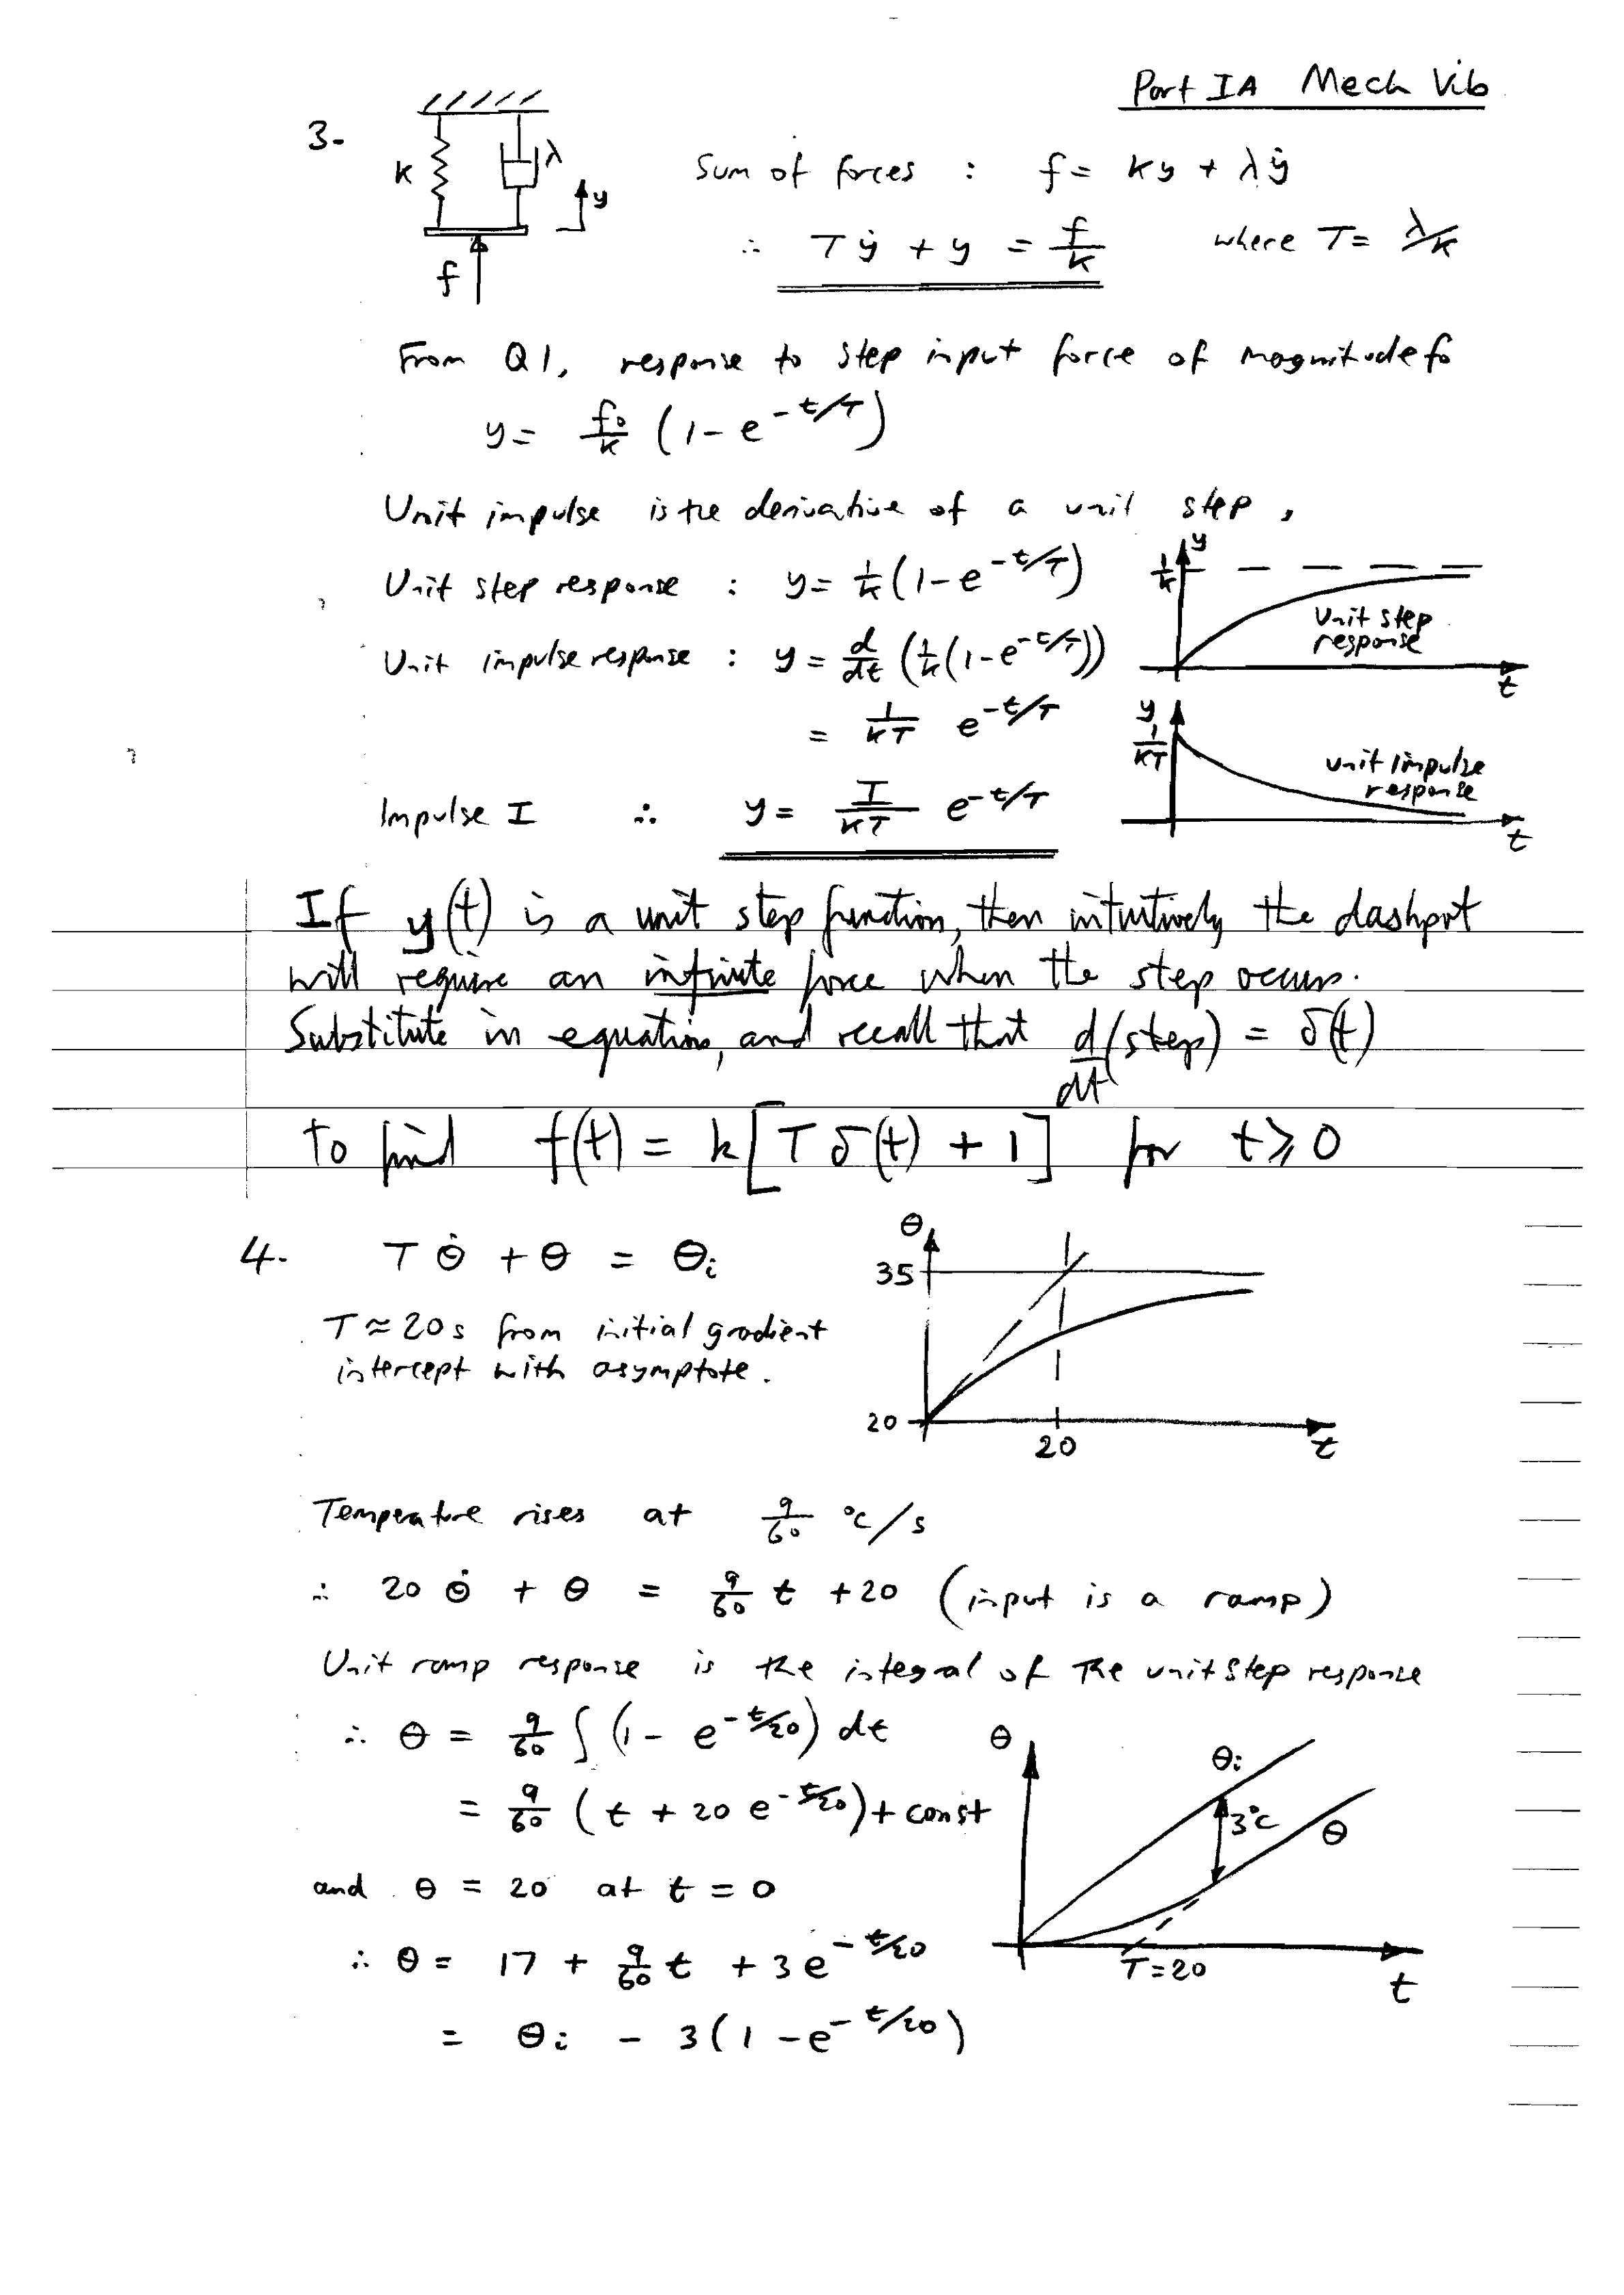 Part IA Mech Vib
3-
k
λ
y
f
Sum of forces : f = ky + λẏ
∴ Tẏ + y = f/k where T = λ/k
From Q1, response to step input force of magnitude f₀
y = f₀/k (1 - e^(-t/T))
Unit impulse is the derivative of a unit step,
Unit step response : y = 1/k (1 - e^(-t/T))
y
1/k
Unit step
response
t
Unit impulse response : y = d/dt (1/k (1 - e^(-t/T)))
= 1/kT e^(-t/T)
y
1/kT
unit impulse
response
t
Impulse I ∴ y = I/kT e^(-t/T)
If y(t) is a unit step function, then intuitively the dashpot
will require an infinite force when the step occurs.
Substitute in equation, and recall that d/dt (step) = δ(t)
to find f(t) = k[Tδ(t) + 1] for t ⩾ 0
4- Tθ̇ + θ = θᵢ
T ≈ 20s from initial gradient
intercept with asymptote.
θ
35
20
20
t
Temperature rises at 9/60 °c/s
∴ 20θ̇ + θ = 9/60 t + 20 (input is a ramp)
Unit ramp response is the integral of the unit step response
∴ θ = 9/60 ∫ (1 - e^(-t/20)) dt
= 9/60 (t + 20 e^(-t/20)) + const
and θ = 20 at t = 0
∴ θ = 17 + 9/60 t + 3e^(-t/20)
= θᵢ - 3(1 - e^(-t/20))
θ
θᵢ
3°c
θ
T=20
t